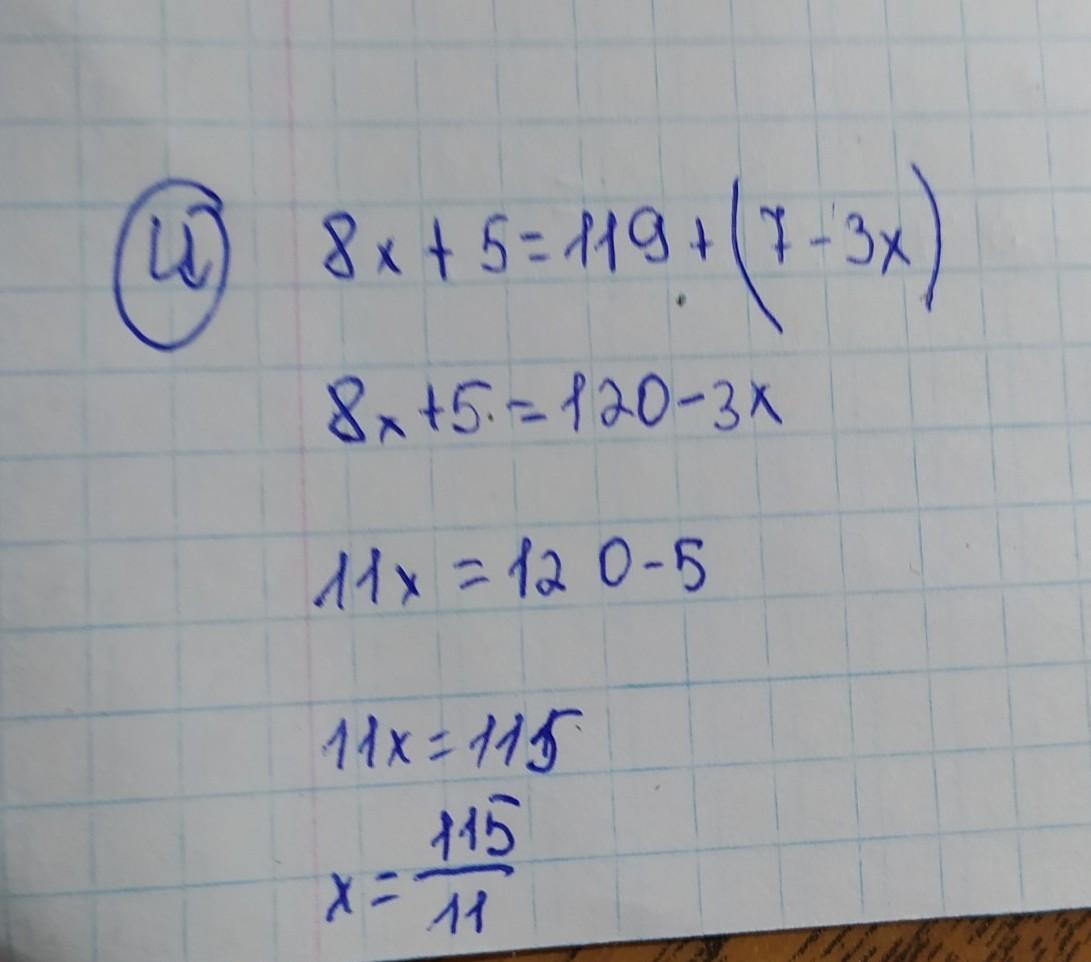 й 8x + 5 = 119 + (7 - 3x)
8x + 5 = 120 - 3x
11x = 120 - 5
11x = 115
x = 115/11